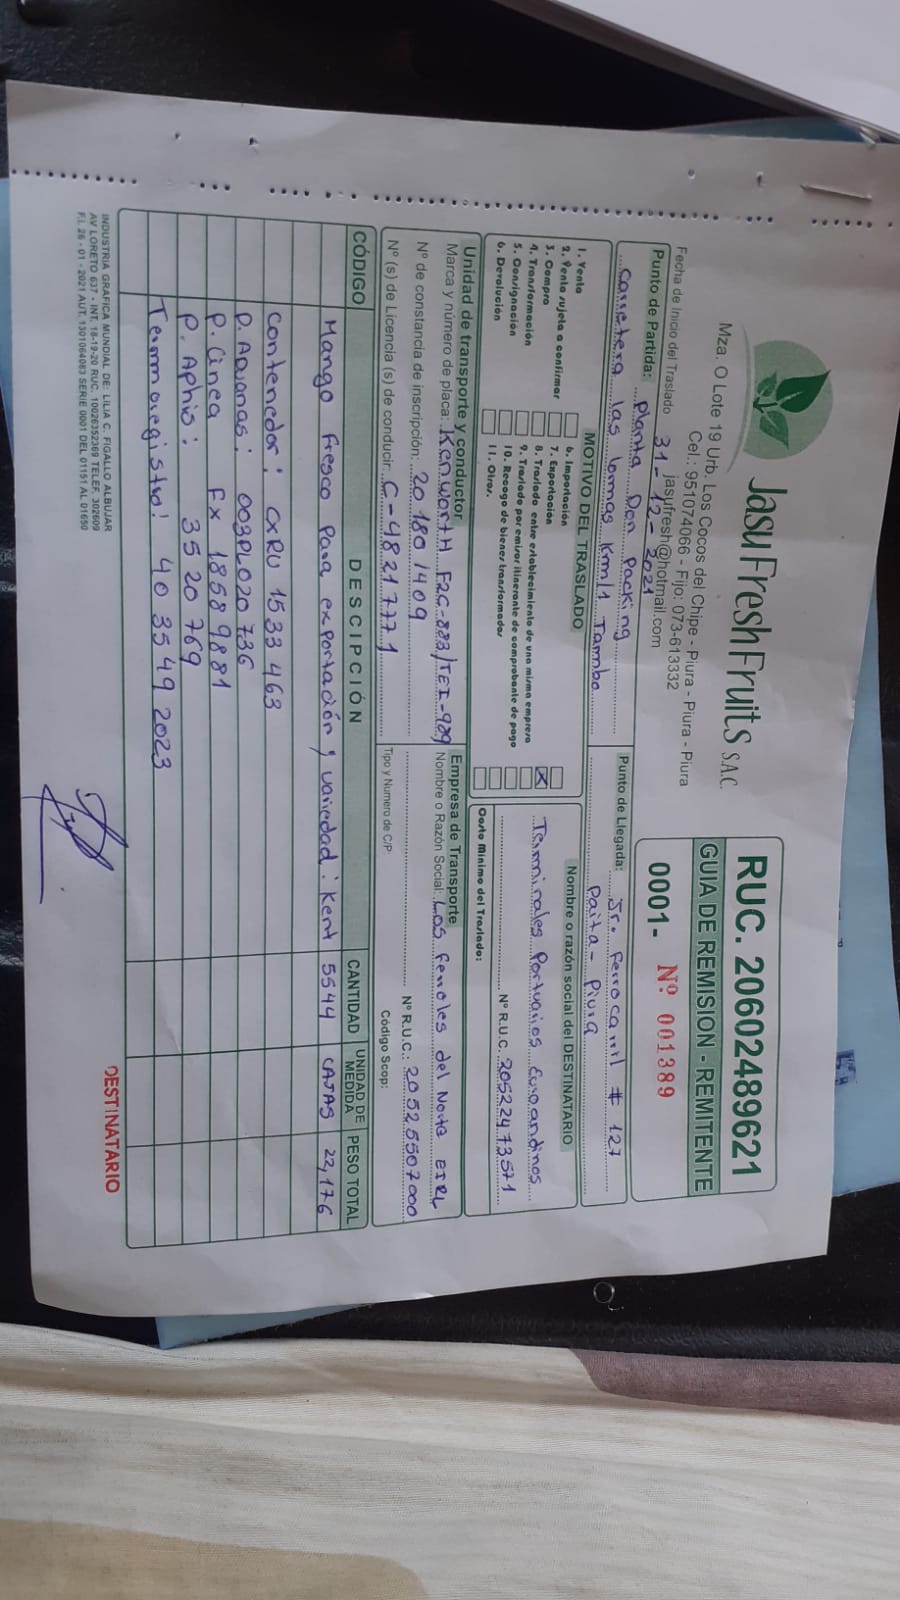 JasuFreshFruits S.A.C.
Mza. O Lote 19 Urb. Los Cocos del Chipe - Piura - Piura - Piura
Cel.: 951074066 - Fijo: 073-613332
jasufresh@hotmail.com
RUC. 20602489621
GUIA DE REMISION - REMITENTE
0001- Nº 001389
Fecha de Inicio del Traslado 31-12-2021
Punto de Partida: Planta Don Packing
Carretera las lomas Km/1 Tambo
Punto de Llegada: Jr. Ferrocarril # 127
Paita - Piura
MOTIVO DEL TRASLADO
1. Venta
2. Venta sujeta a confirmar
3. Compra
4. Transformación
5. Consignación
6. Devolución
6. Importación
7. Exportación
8. Traslado entre establecimiento de una misma empresa X
9. Traslado por emisor itinerante de comprobante de pago
10. Recogo de bienes transformados
11. Otros.
Nombre o razón social del DESTINATARIO
Terminales Portuarios Euroandinos
Nº R.U.C. 20522473571
Costo Mínimo del Traslado:
Unidad de transporte y conductor
Marca y número de placa: Kenworth F2C-883/TEI-989
Nº de constancia de inscripción: 20 180 1409
Nº (s) de Licencia (s) de conducir: C-48217771
Empresa de Transporte
Nombre o Razón Social: Los Ferroles del Norte EIRL
Nº R.U.C.: 20525507000
Tipo y Numero de C/P:
Código Scop:
CÓDIGO DESCIPCIÓN CANTIDAD UNIDAD DE MEDIDA PESO TOTAL
Mango fresco para exportación y variedad: Kent 5544 CAJAS 22,176
Contenedor: CXRU 1533463
P. Aduanas: 003PL020736
P. Linea Fx 18589881
P. Aphis: 3520769
Termoregistro: 4035492023
INDUSTRIA GRAFICA MUNDIAL DE: LILIA C. FIGALLO ALBUJAR
AV LORETO 637 - INT. 18-19-20 RUC. 10026352369 TELEF. 302609
F.I. 26 - 01 - 2021 AUT. 1301064083 SERIE 0001 DEL 01151 AL 01650
DESTINATARIO